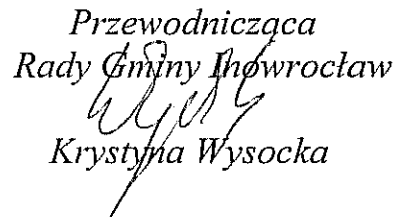 Przewodnicząca
Rady Gminy Inowrocław
Krystyna Wysocka